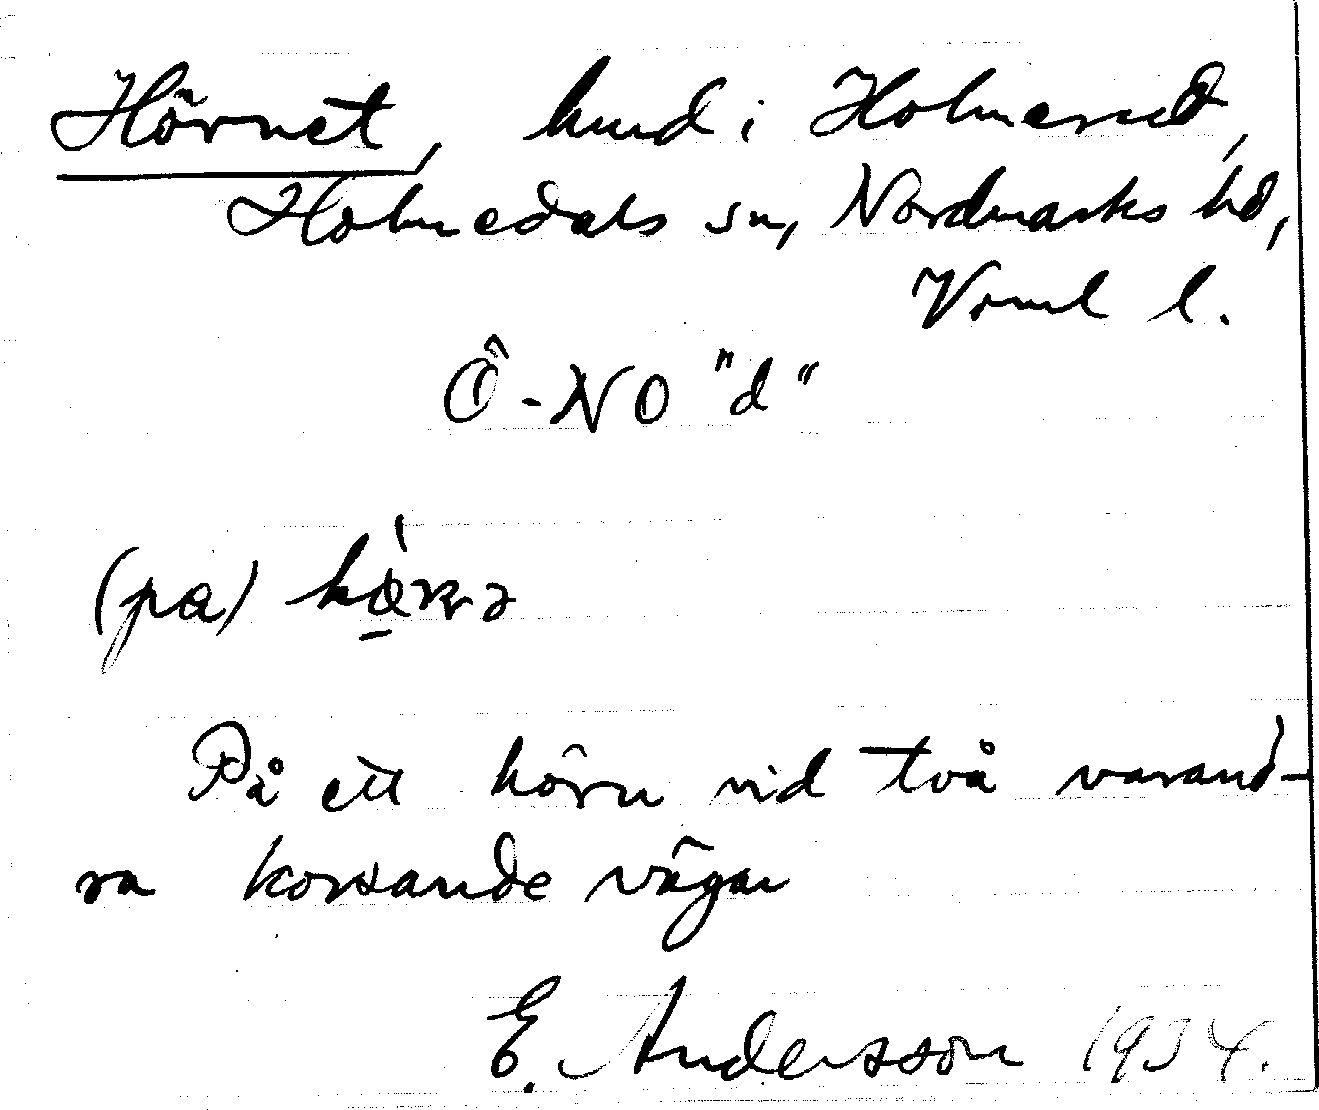 Hörnet, hmd i Holmerud,
Holmedals sn, Nordmarks hd,
Vrml l.
Ö-NO "d"
(pa)
På ett hörn vid två varand-
ra korsande vägar
E. Andersson 1934.